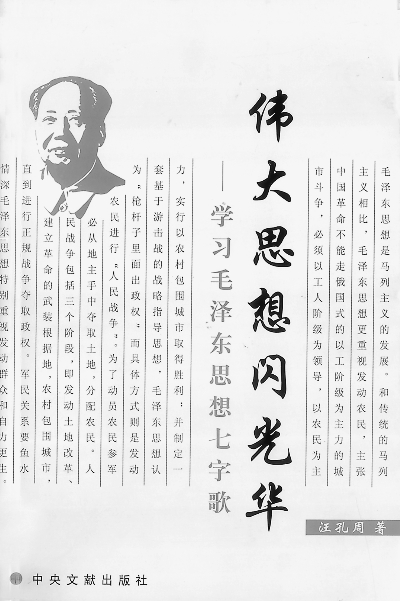 毛泽东思想是马列主义的发展。和传统的马列
主义相比，毛泽东思想更重视发动农民，主张
中国革命不能走俄国式的以工阶级为主力的城
市斗争，必须以工人阶级为领导，以农民为主
伟大思想闪光华
——学习毛泽东思想七字歌
方，实行以农村包围城市取得胜利；并制定一
套基于游击战的战略指导思想，毛泽东思想认
为“枪杆子里面出政权”而具体方式则是发动
农民进行“人民战争”。为了动员农民参军
必从地主手中夺取土地，分配农民。人
民战争包括三个阶段，即发动土地改革、
建立革命的武装根据地。农村包围城市，
直到进行正规战争夺取政权。军民关系要鱼水
情深毛泽东思想特别重视发动群众和自力更生。
汪孔周 著
中央文献出版社